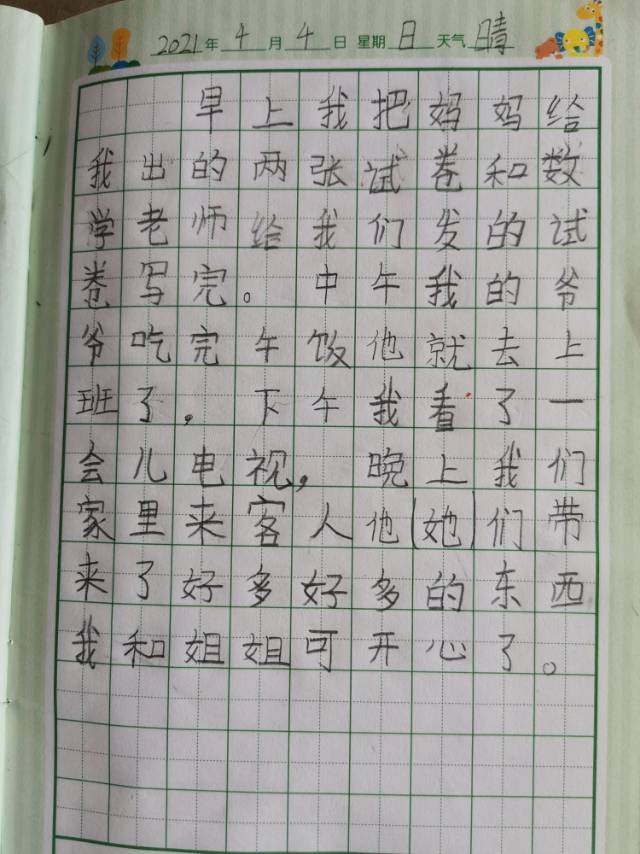 2021年4月4日 星期日 天气晴
早上我把妈妈给
我出的两张试卷和数
学老师给我们发的试
卷写完。中午我的爷
爷吃完午饭他就去上
班了，下午我看了一
会儿电视，晚上我们
家里来客人他(她)们带
来了好多好多的东西
我和姐姐可开心了。